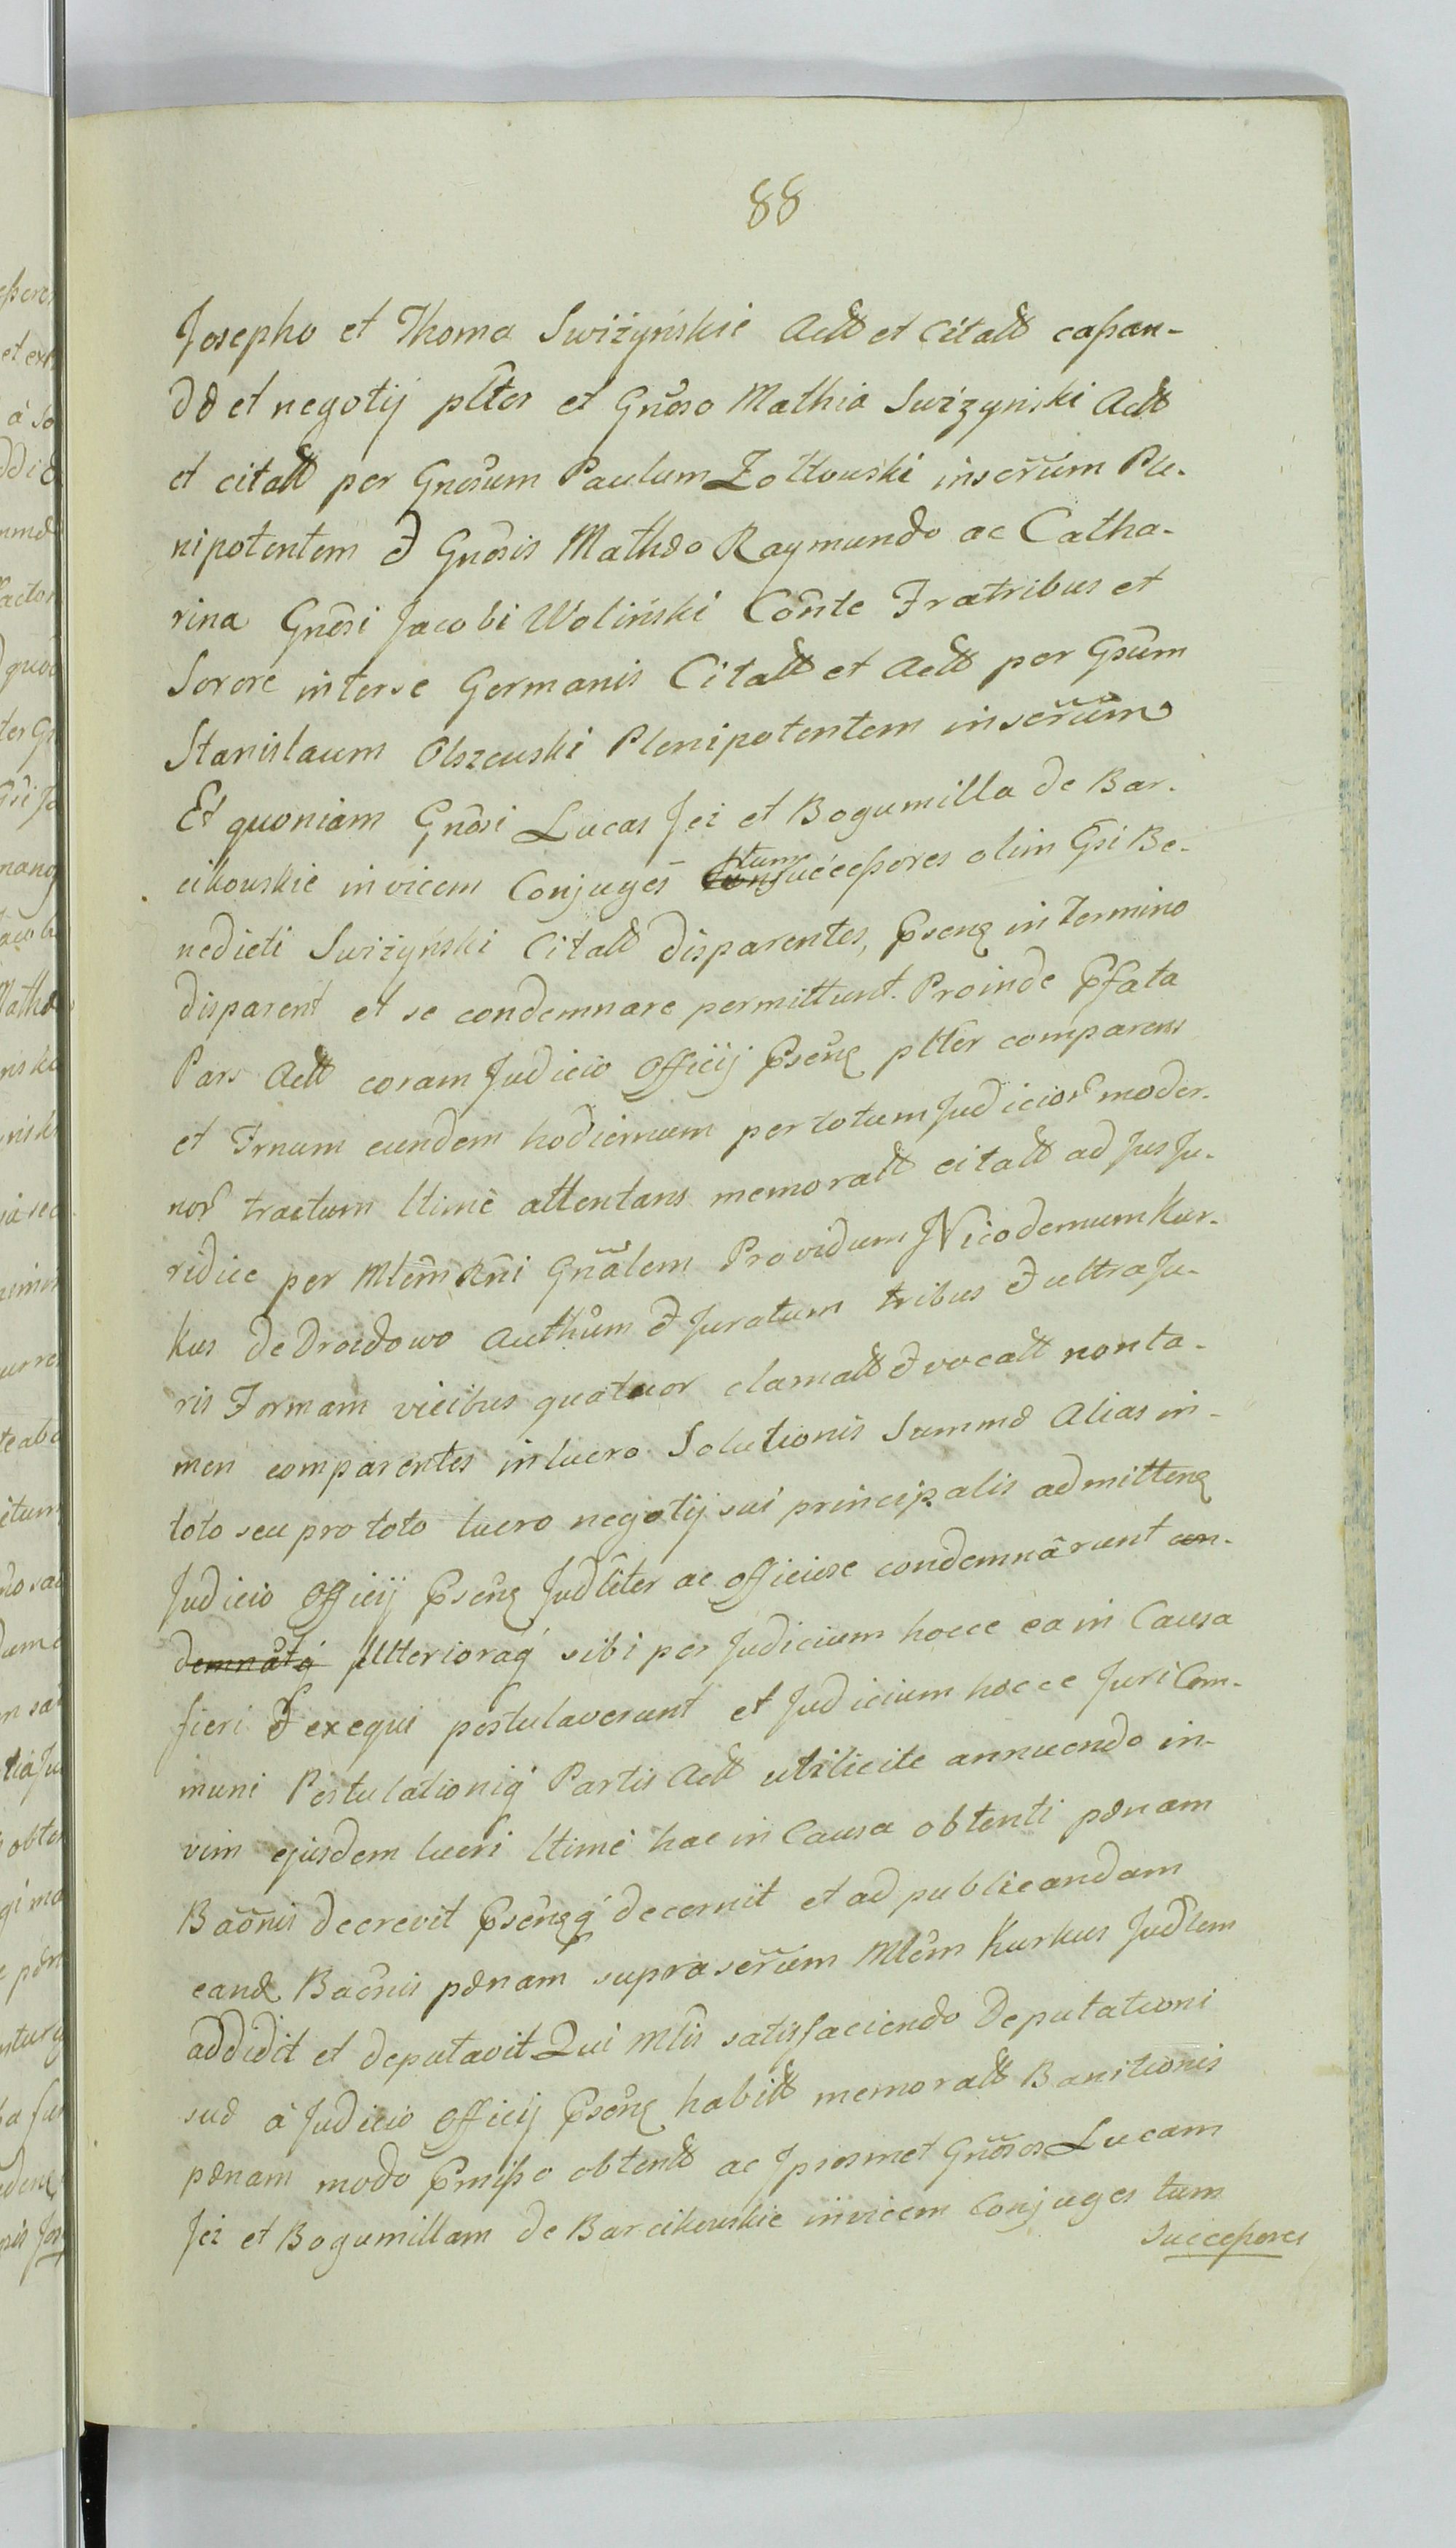 88
Josepho et Thoma Swiżyńskie Actt et citatt cassan-
dæ et negotij pltes et Gnoso Mathia Swizynski Actt
et citatt per Gnosum Paulum Zołtowski inscrum Ple-
nipotentem & Gnosis Mathæo Raymundo ac Catha-
rina Gnosi Jacobi Woliński Conte Fratribus et
Sorore interse Germanis Citatt et Actt per Gsum
Stanislaum Olszewski Plenipotentem inserum
Et quoniam Gnosi Lucas Jeż et Bogumilla de Bar-
cikowskie invicem Conjuges tum Successores olim Gsi Be-
nedicti Swiżyński Citatt disparentes, Psenq in Termino
disparent et se condemnare permittunt. Proinde Pfata
Pars Actt coram Judicio Officij Psenq plter comparens
et Trnum eundem hodiernum per totum Judicior moder-
nor tractum ltime attentans memoratt citatt ad Jus Ju-
ridice per Mlem Rni Gnalem Providum Nicodemum Kur-
kus de Drozdowo Authum & Juratum tribus & ultra Ju-
ris Formam vicibus quatuor clamatt & vocatt non ta-
men comparentes in lucro Solutionis Summæ Alias in-
toto seu pro toto lucro negotij sui principalis admittenq
Judicio Officij Psenq Judliter ac officiose condemnârunt con-
demnatq Ulterioraq sibi per Judicium hocce ea in Causa
fieri & exequi postulaverunt et Judicium hocce Juri Com-
muni Postulationiq Partis Actt utilicite annuendo in-
vim ejusdem lucri ltime hac in Causa obtenti pænam
Baonis decrevit Psenqq decernit et ad publicandam
eand Baonis pænam suprascrum Mlem Kurkus Judlem
addidit et deputavit Qui Mlis satisfaciendo Deputationi
suæ à Judicio Officij Psenq habitt memoratt Banitionis
pænam modo Pmisso obtentt ac Ipsosmet Gnosos Lucam
Jeż et Bogumillam de Barcikowskie invicem Conjuges tum
Successores